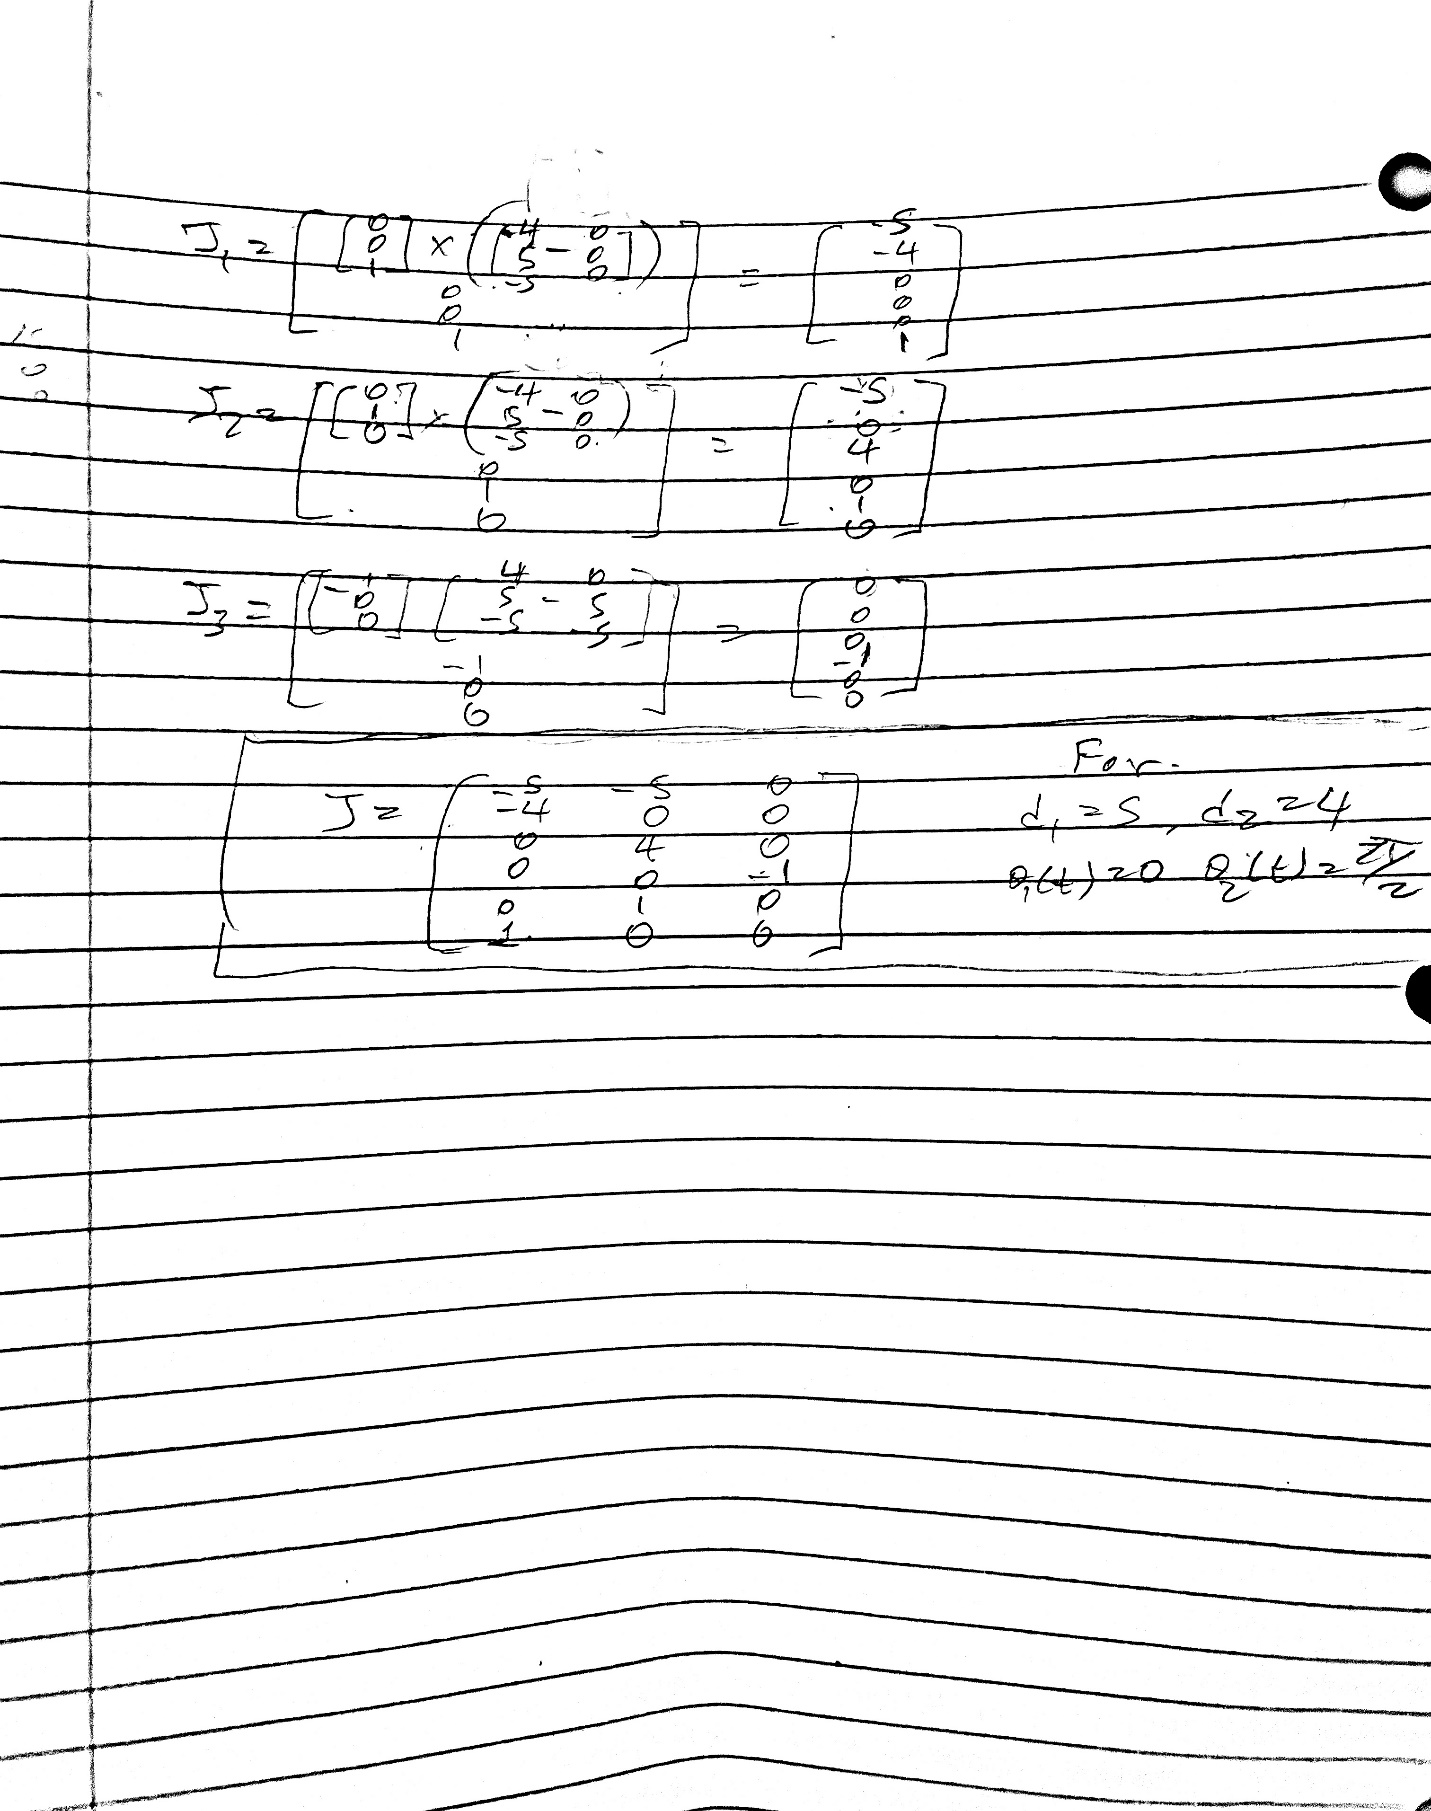 J₁ = [ [0 0 1] × ([-4 5 -5] - [0 0 0]) 0 0 1 ] = [-5 -4 0 0 0 1]
J₂ = [ [0 1 0] × (-4 5 -5 - 0 0 0) 0 1 0 ] = [-5 0 4 0 1 0]
J₃ = [ [-1 0 0] [4 5 -5 - 0 5 -5] -1 0 0 ] = [0 0 0 -1 0 0]
For.
J = [ -5 -5 0
-4 0 0
0 4 0
0 0 -1
0 1 0
1 0 0 ]
d₁ = 5, d₂ = 4
θ₁(t) = 0 θ₂(t) = π/2